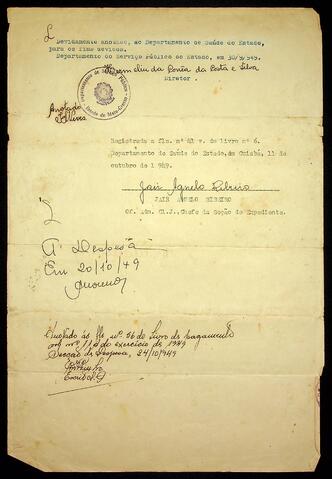 Devidamente anotado, ao Departamento de Saúde do Estado,
para os fins devidos.
Departamento do Serviço Público do Estado, em 30/9/949.
da Costa e Silva
Diretor.
Anotado
Registrada a fls. nº 41 v. do livro nº 6.
Departamento de Saúde do Estado, em Cuiabá, 11 de
outubro de 1 949.
Jair Agnelo Ribeiro
JAIR AGNELO RIBEIRO
Of. Adm. Cl.J., Chefe da Secção de Expediente.
A Despesa
Em 20/10/49
Anotado às fls. nº 56 do Livro de pagamento
nº 11 do exercicio de 1949
Secção da Despesa, 24/10/949